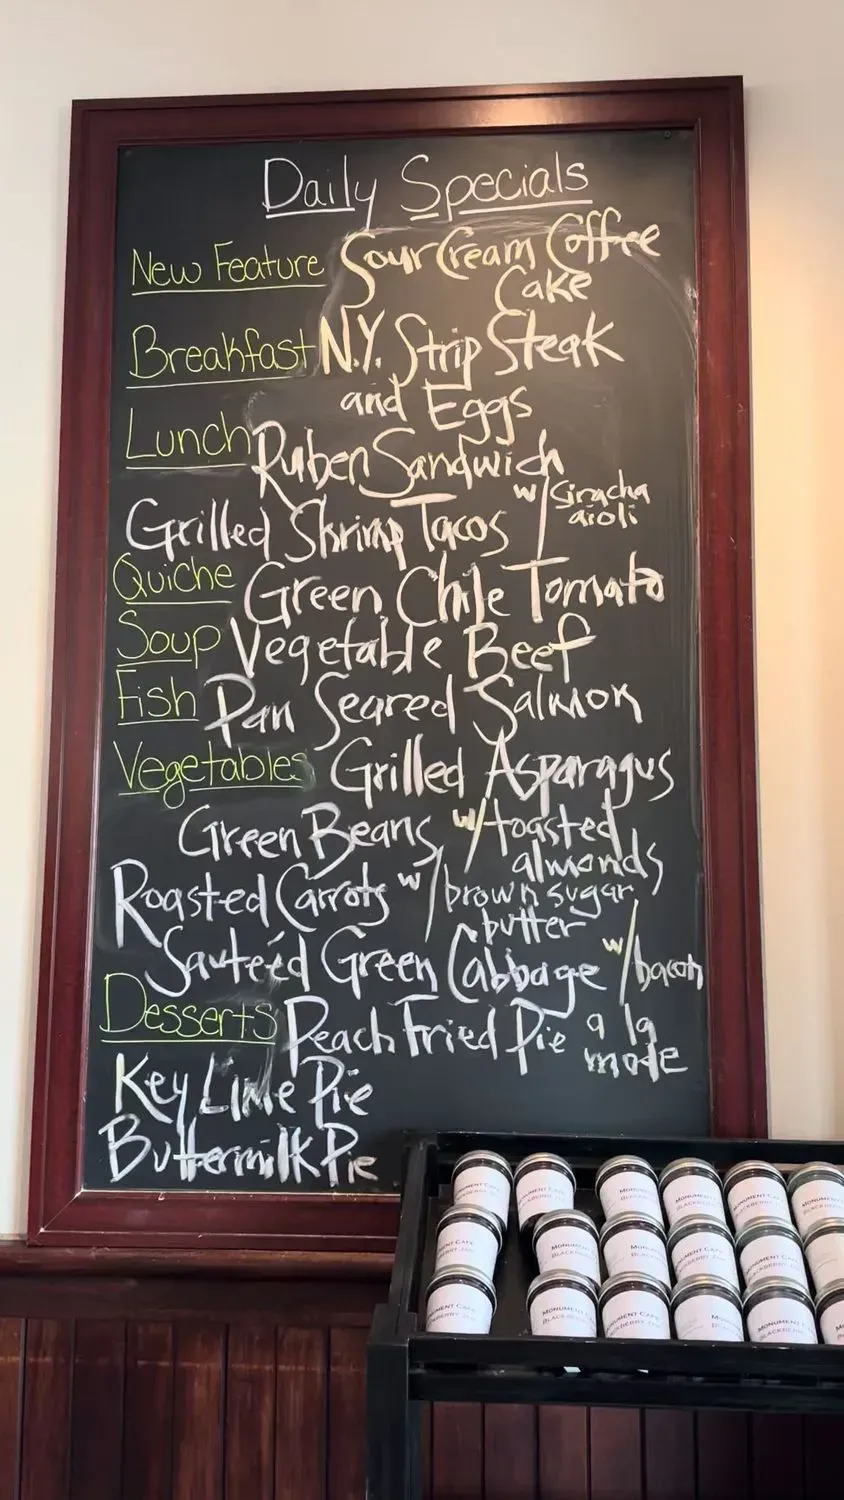 Daily Specials
New Feature Sour Cream Coffee
Cake
Breakfast N.Y. Strip Steak
and Eggs
Lunch Ruben Sandwich
Grilled Shrimp Tacos w/ Siracha
aioli
Quiche Green Chile Tomato
Soup Vegetable Beef
Fish Pan Seared Salmon
Vegetables Grilled Asparagus
Green Beans w/ toasted
almonds
Roasted Carrots w/ brown sugar
butter
Sauteéd Green Cabbage w/ bacon
Desserts Peach Fried Pie a la
mode
Key Lime Pie
Buttermilk Pie
Monument Cafe
Blackberry Jam